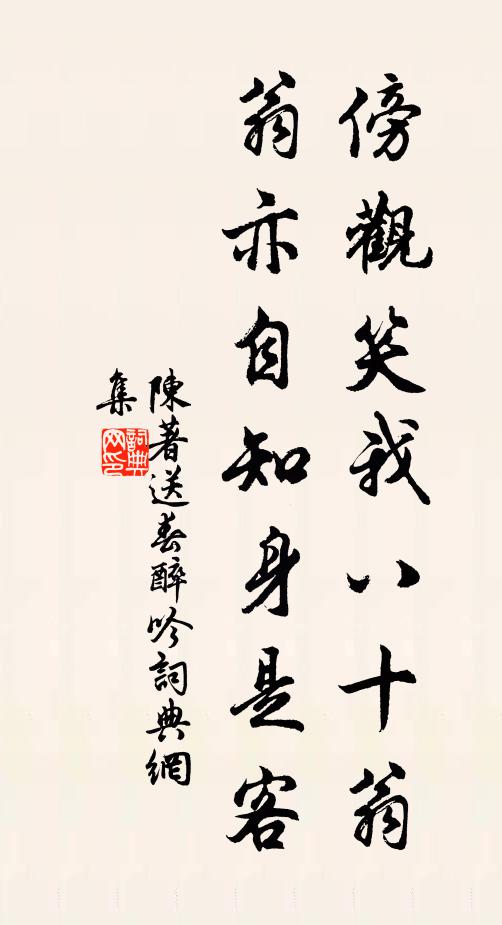 傍觀笑我八十翁
翁亦自知身是客
陳著送春醉吟詞典網
集
詞典网印